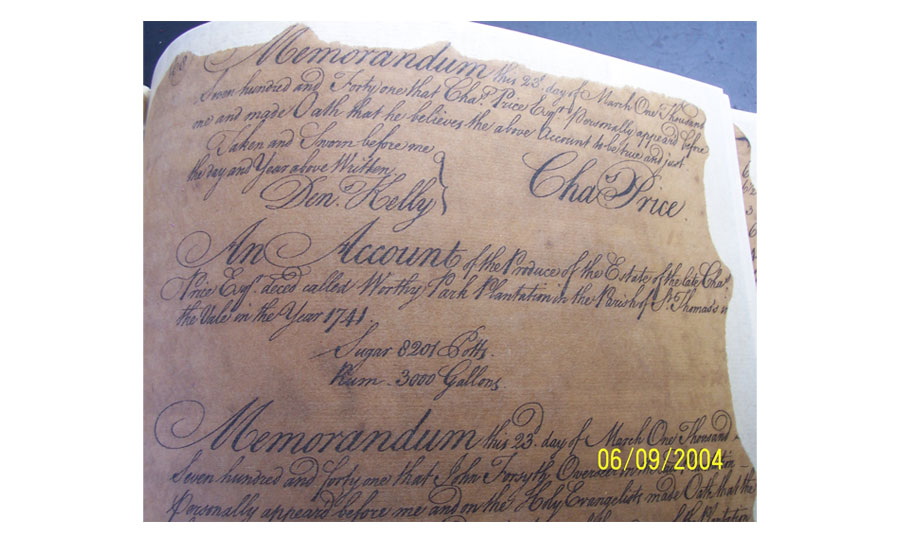 Memorandum this 23d. day of March One Thousand
Seven hundred and Forty one that Chas. Price Esqr. Personally appeared before
me and made Oath that he believes the above Account to be true and just
Taken and Sworn before me
the day and Year above Written
Den. Kelly
Chas. Price.
An Account of the Produce of the Estate of the late Chas.
Price Esqr. deced called Worthy Park Plantation in the Parish of St. Thomas's in
the Vale in the Year 1741.
Sugar 8201 Potts.
Rum . 3000 Gallons.
Memorandum this 23d. day of March One Thousand
Seven hundred and forty one that John Forsyth, Overseer
Personally appeared before me and on the Holy Evangelists made Oath that the
Plantation
06/09/2004